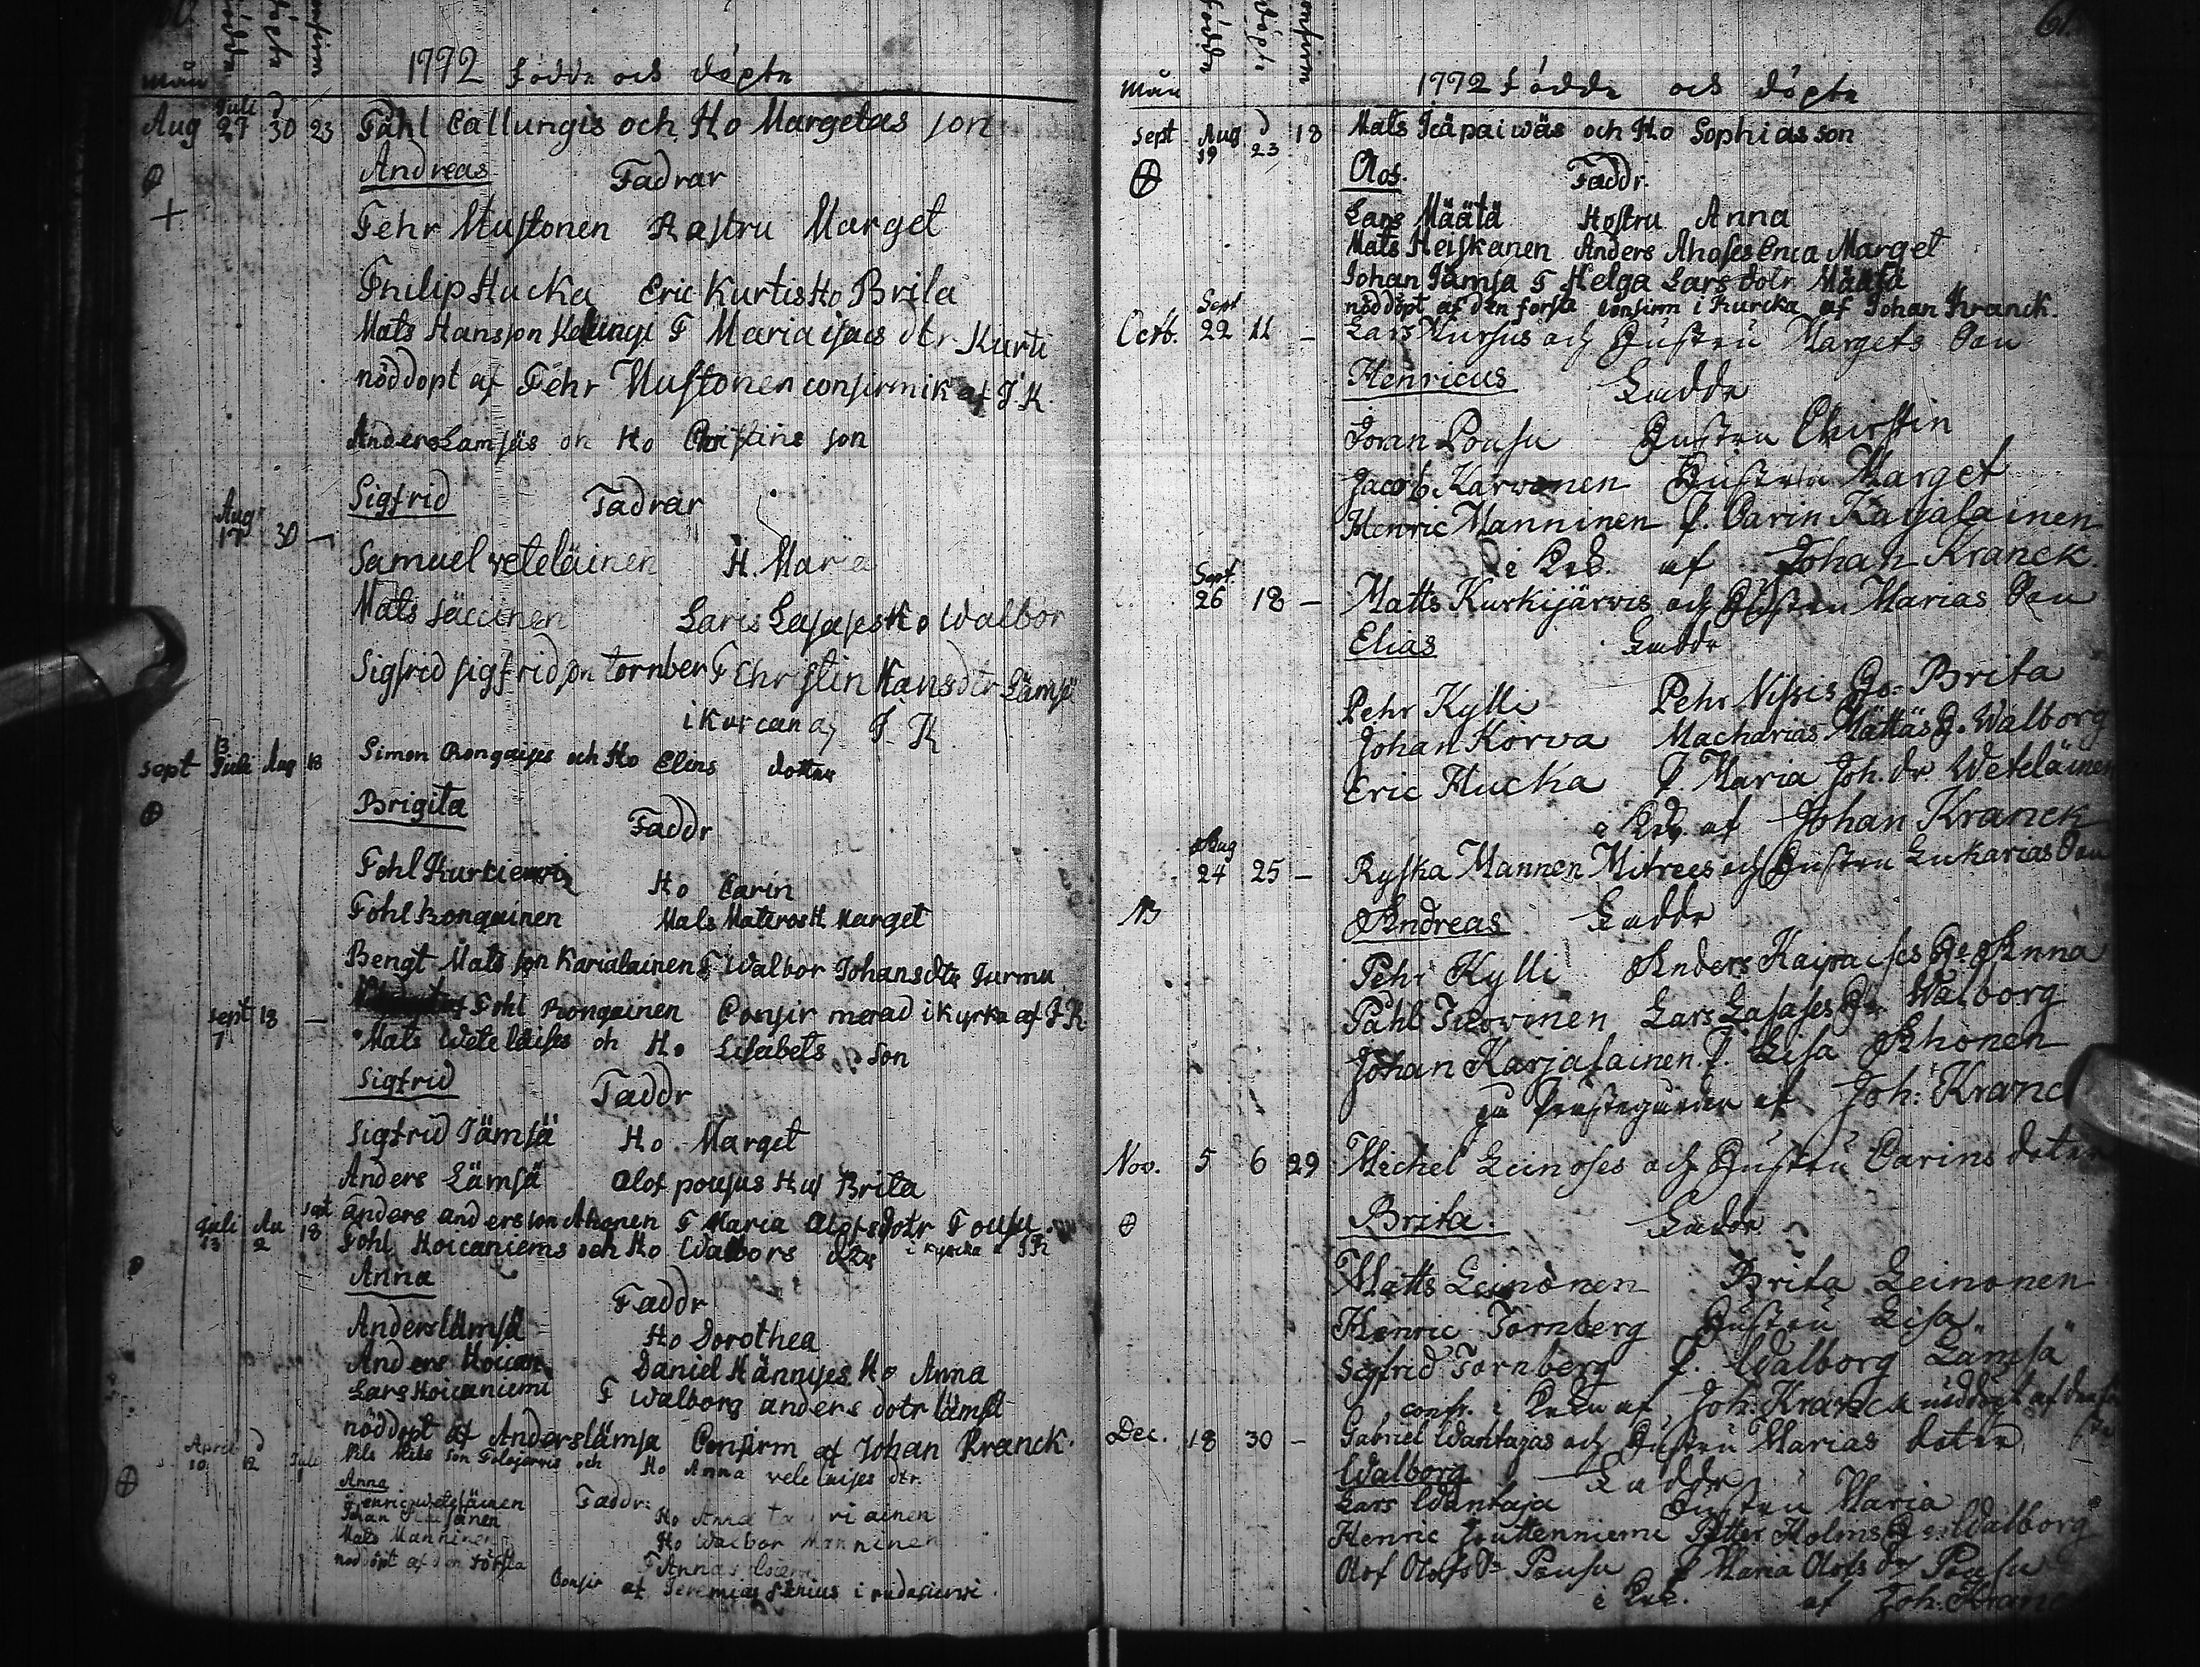 födde döpte confirm
Mån 1772 födde och döpte
Aug Juli 27 d 30 23 Påhl Callungis och Ho Margetas son
Andreas Fadrar
Pehr Mustonen Hostru Marget
Philip Hucka Eric Kurtis Ho Brita
Mats Hansson Kellungi P Maria isacs dtr Kurti
nöddopt af Pehr Mustonen confirm i K af J K
Anders Lamsäs oh Ho Christins son
Sigfrid Fadrar
Aug 17 30 —
Samuel veteläinen H. Maria
Mats säccinen Lars Lasases Ho Walbor
Sigfrid sigfridson tornber P Christin Hansdtr Lämsä
i Kurcan af J. K
sept 13 Juli Aug 18 Simon Rongaises och Ho Elins dotter
Brigita Faddr
Pohl Kurkiemi Ho Carin
Pohl Rongainen Mats Matros H Marget
Bengt Mats son Karialainen P Walbor Johansdtr Jurmu
Pohl Rongainen Confir merad i Kyrka af J K
sept 7 18 — Mats Wetelaises oh Ho Lisabets son
Sigfrid Faddr
Sigfrid Jämsä Ho Marget
Anders Lämsä Olof pousus Hus Brita
anders andersson Ahonen P Maria Olofsdotr Pousu
i kyrcka J K
Juli 13 Au 2 sept 18 Pohl Hoicaniems och Ho Walbors dtr
Anna Faddr
Anders lämsä Ho Dorothea
Anders Hoican Daniel Hännises Ho Anna
Lars Hoicaniemi P Walborg anders dotr lämsä
nöddopt af Anders lämsä Confirm af Johan Kranck.
April 10 d 12 Juli Nils Nils son Polojervis och Ho Anna vetelaises dtr.
Anna Faddr:
Henric weteläinen Ho Anna
Johan
Mats Manninen Ho Walbor Manninen
noddöpt af den första P Anna
Confir af Jeremias
61.
födde döpte confirm
Mån 1772 födde och döpte
sept Aug 19 d 23 18 Mats Icäpaiwäs och Ho Sophias son
Olof. Faddr.
Lars Määtä Hostru Anna
Mats Heiskanen Anders Ahoses Enca Marget
Johan Jämsa P Helga Lars dotr Määtä
nöddöpt af den forsta confirm i kurcka af Johan Kranck.
Octb. Sept 22 11 — Lars Kursus och Hustru Margets Son
Henricus Faddr
Joran Pousu Hustru Christin
Jacob Karvonen Hustru Marget
Henric Manninen P. Carin Karjalainen
i Krk. af Johan Kranck.
Sept. 26 18 — Matts Kurkijärvis och Hustru Marias Son
Elias Faddr
Pehr Kylli Pehr Nissis Ho. Brita
Johan Korva Macharias Mättäs H. Walborg
Eric Hucka P. Maria Joh. dr Weteläinen
i Krk. af Johan Kranck
Aug 24 25 — Ryska Mannen Mitrees och Hustru Lukarias Son
Andreas Faddr
Pehr Kylli Anders Kaipaises Ho Anna
Påhl Tuovinen Lars Lasases Ho Walborg
Johan Karjalainen. P. Lisa Ahonen
på Prästegården af Joh: Kranc
Nov. 5 6 29 Michel Leinoses och Hustru Carins doter
Brita. Faddr.
Matts Leinonen Brita Leinonen
Henric Tornberg Hustru Lisa.
Sigfrid Tornberg P. Walborg Lämsä
confr. i Krkn af Joh: Kranck nöddopt af den första
Dec. 18 30 — Gabriel Wantajas och Hustru Marias doter
Walborg Faddr
Lars Wantaja Hustru Maria
Henric Juttenniemi Petter Holms Ho Walborg
Olof Olofs Sn Pousu P Maria Olofs dr Pousu
i Krk. af Joh: Kranc